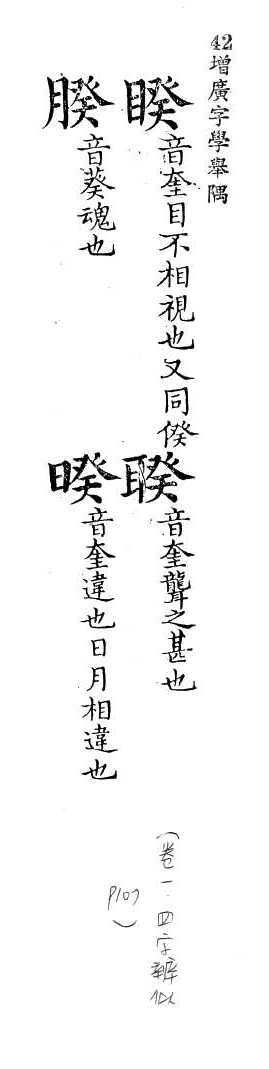 42增廣字學舉隅
睽音奎目不相視也又同㑧
聧音奎聾之甚也
䐆音葵魂也
暌音奎違也日月相違也
(卷一．四字辨似
P107)